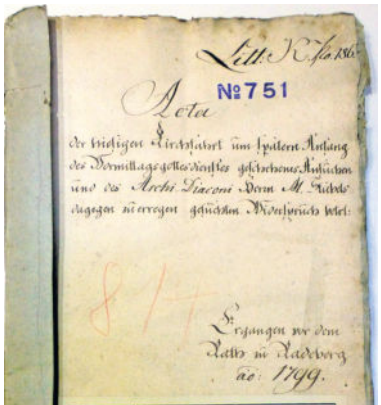 Litt: K. No. 186
Nº 751
Acta
der hiesigen Kirchfahrt um spätern Anfang
des Vormittagsgottesdienstes geschehenes Ansuchen
und des Archi-Diaconi Herrn M.
dagegen zu erregen gesuchten Widerspruch betr:
814
Ergangen vor dem
Rathe zu Radeberg
ao: 1799.